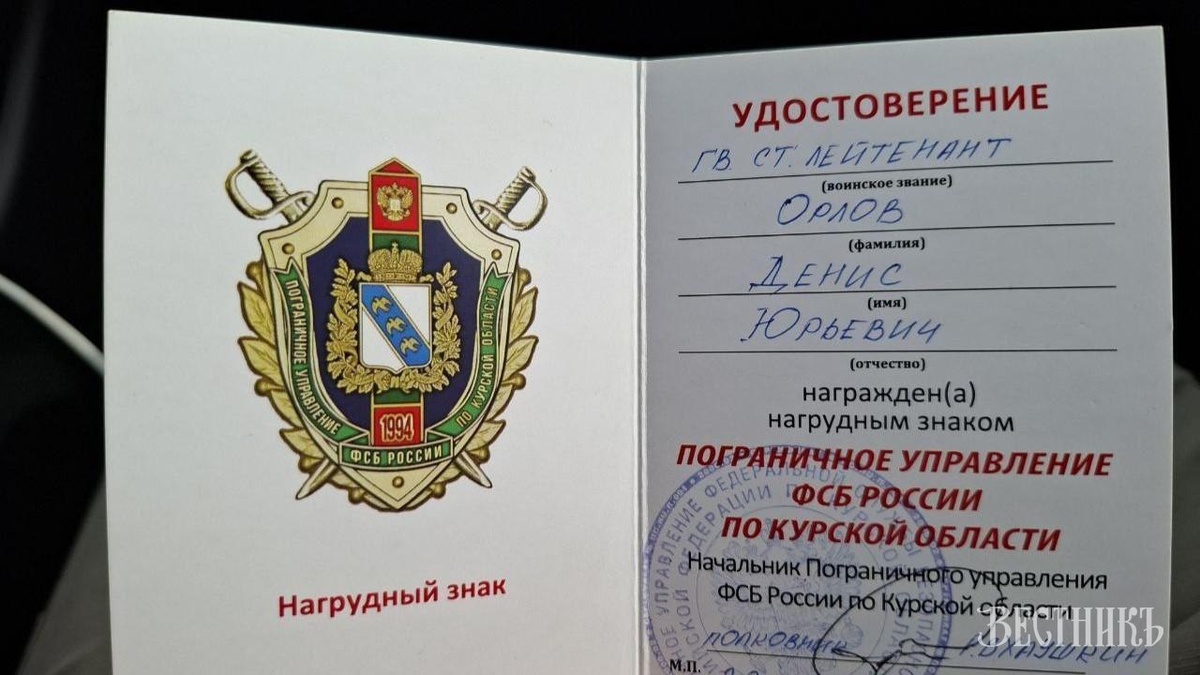 ПОГРАНИЧНОЕ УПРАВЛЕНИЕ
ПО КУРСКОЙ ОБЛАСТИ
1994
ФСБ РОССИИ
Нагрудный знак
УДОСТОВЕРЕНИЕ
ГВ. СТ. ЛЕЙТЕНАНТ
(воинское звание)
ОРЛОВ
(фамилия)
ДЕНИС
(имя)
ЮРЬЕВИЧ
(отчество)
награжден(а)
нагрудным знаком
ПОГРАНИЧНОЕ УПРАВЛЕНИЕ
ФСБ РОССИИ
ПО КУРСКОЙ ОБЛАСТИ
Начальник Пограничного управления
ФСБ России по Курской области
ПОЛКОВНИК
М.П.
ВЕСТНИКЪ